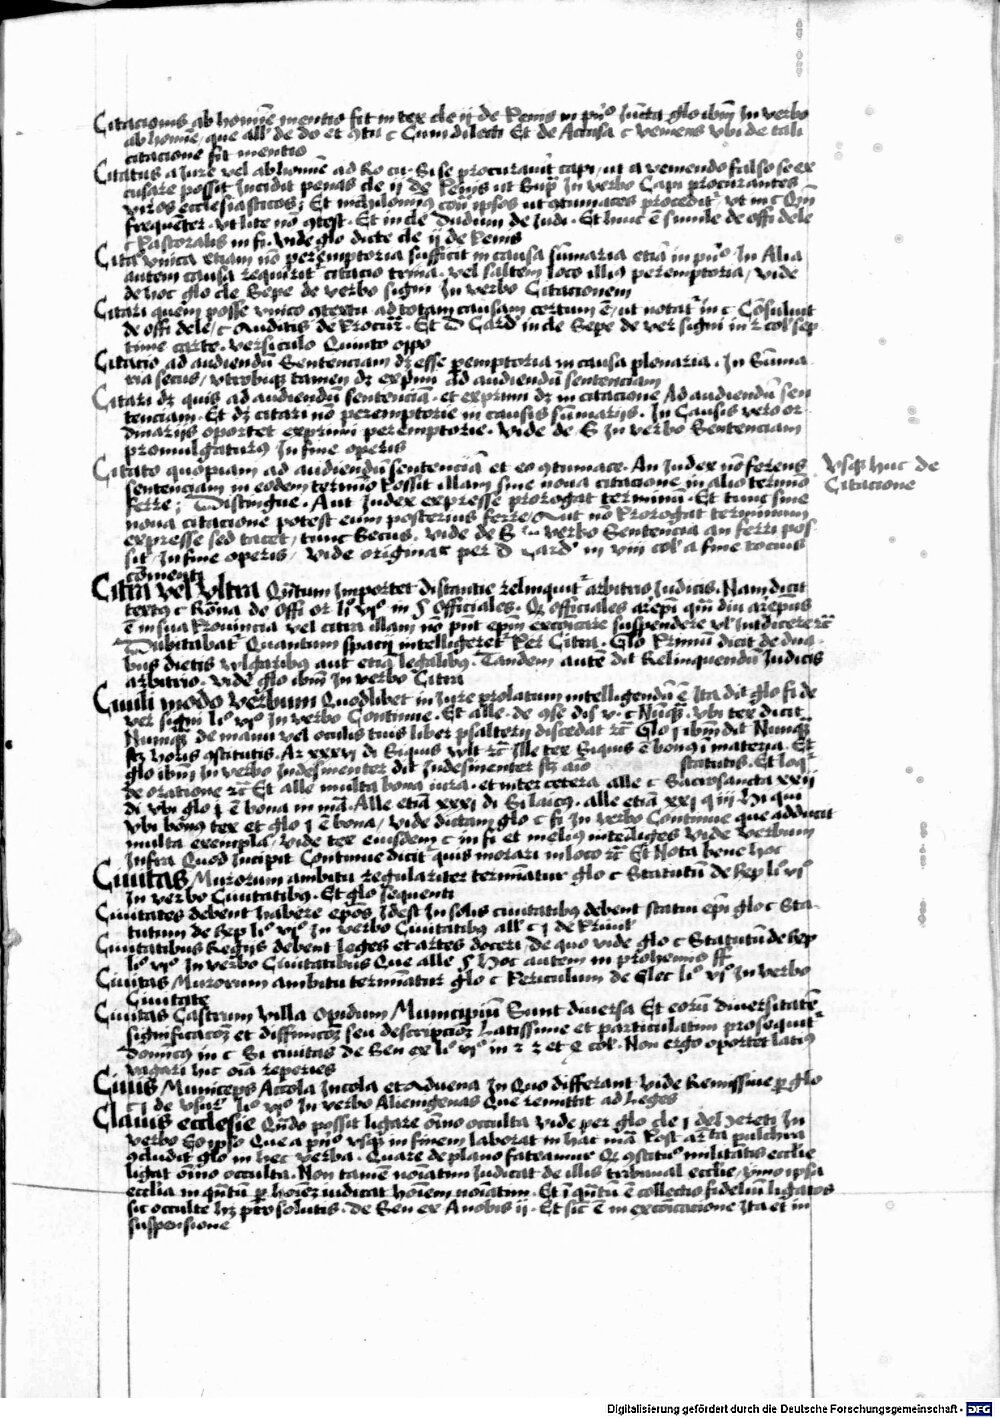 Citacionis ab homine mentio fit in tex cle ij de Renis in pri° Juncta glo ibm In verbo
ab homine, que all' de do et 9tu c Cum dilecti Et de Accusa c veniens vbi de tali
citacione fit mentio
Citatus a Jure vel ab homine ad Ro cu. Si se procurauit capi, ut a veniendo falso se ex
cusare possit Incidit penas cle ij de Penis ut sup In verbo Capi procurantes
viros ecclesiasticos; Et nichilominus 9tra ipsos ut 9tumaces procedit, vt in c Qm
frequenter. vt lite no 9test. Et in cle Dudum de Judi. Et huic e simile de offi dele
c Pastoralis in fi. vide glo dicte cle ij de Penis
Cita vnica etiam no peremptoria sufficit in causa sumaria etia in pri°. In Alia
autem causa requirit citacio trina. vel saltem loco illius peremptoria, vide
de hoc glo cle Sepe de verbo signi In verbo Citacionem
Citari quem posse vnico 9textu ad totam causam certum e, ut notat in c. Consuluit
de offi dele, c Auditis de Procur. Et D Card in cle Sepe de ver signi in 2 col sep
time carte. versiculo Quinto oppo
Citacio ad audiendu Sentenciam dz esse peremptoria in causa plenaria. In Suma
ria secus, vtrobiqz tamen dz exprimi ad audiendu sentenciam
Citari dz quis ad audiendu sentencia. et exprimi dz in citacione Ad audiendu sen
tenciam. Et dz citari no peremptorie in causis sumarijs. In Causis vero or
dinarijs oportet exprimi peremptorie. Vide de S In verbo Sentenciam
promulgaturus In fine operis
Citato quopiam ad audiendu sentencia et eo 9tumace. An Iudex no ferens
sentenciam in eodem termino Possit illam sine noua citacione in alio termino
ferre; Distingue. Aut Iudex expresse prorogat terminu. Et tunc sine
noua citacione potest eum posterius ferre, Aut no Prorogat terminum
expresse sed tacet, tunc Secus. vide de S in verbo Sentencia an ferri pos
sit, In fine operis, vide origina c per D Card in viij col a fine tocius
comenti
Vsqz huc de
Citacione
Citra vel vltra Quntum Importet distantie relinquit arbitrio Iudicis. Nam dicit
textus c Roma de offi or li° vj° in § Officiales. Qz officiales arepi qm diu arepus
e in sua Prouincia vel citra illam no pnt epm excoicare suspendere vl Intdicere rc
Dubitabat Quantum spacij intelligeret Per Citra. Glo Primu dicit de dua
bus dietis vlgaribus aut etia legalibus. Tandem ante dit Relinquendu Iudicis
arbitrio. vide glo ibm In verbo Citra
Ciuili modo verbum Quodlibet in Iure prolatum intelligendu e Ita dit glo fi de
ver signi li° vj° In verbo Continue. Et alle. de 9se dis v. c Nuqz. vbi tex dicit
Numqz de manu vel oculis tuis liber psalterij discedat rc Glo j ibm dit Nunqz
sz horis 9stitutis. Ar xxxvj di Siquis vult rc Ille tex Siquis e bonus i materia. Et
glo ibm In verbo Indesinenter dit Indesinenter sz statutis. Et loq
de oratione rc Et alle multa bona iura. et inter cetera alle c Sacrosancta xxij
di vbi glo j e bona in ma. Alle etia xxxj di Si laicus. alle etia xxj q iij Hi qui
vbi bonus tex et glo j e bona, vide dictam glo c fi In verbo Continue que adducit
multa exempla, vide tex eiusdem c in fi et melius intelliges vide Verbum
Infra Quod Incipit Continue dicit quis morari in loco rc Et Nota bene hoc
Ciuitas Murorum ambitu regulariter terminatur glo c Statutum de hep li° vj°
In verbo Ciuitatibus. Et glo sequenti
Ciuitates debent habere epos Idest In solis ciuitatibus debent statui epi glo c Sta-
tutum de hep li° vj° In verbo Ciuitatibus all' c j de Priuil
Ciuitatibus Regijs debent leges et artes doceri de quo vide glo c Statutum de hep
li° vj° In verbo Ciuitatibus Que alle § Hoc autem in prohemio ff
Ciuitas Murorum ambitu terminatur glo c Periculum de Elec li° vj° In verbo
Ciuitate
Ciuitas Castrum Villa Opidum Municipiu Sunt diuersa Et eoru diuersitate
significacoz et diffinicoz seu descripcioz Latissime et particulatim prosequit
Dominicus in c Si ciuitas de Sen ex li° vj° in 2 3 et 4 col. Non ergo oportet latius
vagari hic oia reperies
Ciuis Municeps Accola Incola et Aduena In Quo differant vide Remissiue p glo
c j de vsur li° vj° In verbo Alienigenas Que remittit ad Leges
Clauis ecclesie Qndo possit ligare omino occulta vide per glo cle j de hereti In
verbo Eo ipso Que a pri° vsqz in finem laborat in hac ma Post arta pulchra
9cludit glo in hec verba. Quare de plano fateamur Qz 9stitutio militatis ecclie
ligat omino occulta. Non tamen noiatim Iudicat de illis tribunal ecclie, ymo ipsa
ecclia in qntu p hoiez iudicat hoiem noiatim. Et i qntu e collectio fideliu ligatos
sic occulte hz pro solutis. de Sen ex A nobis ij. Et sic e in excoicacione Ita et in
suspensione
Digitalisierung gefördert durch die Deutsche Forschungsgemeinschaft - DFG